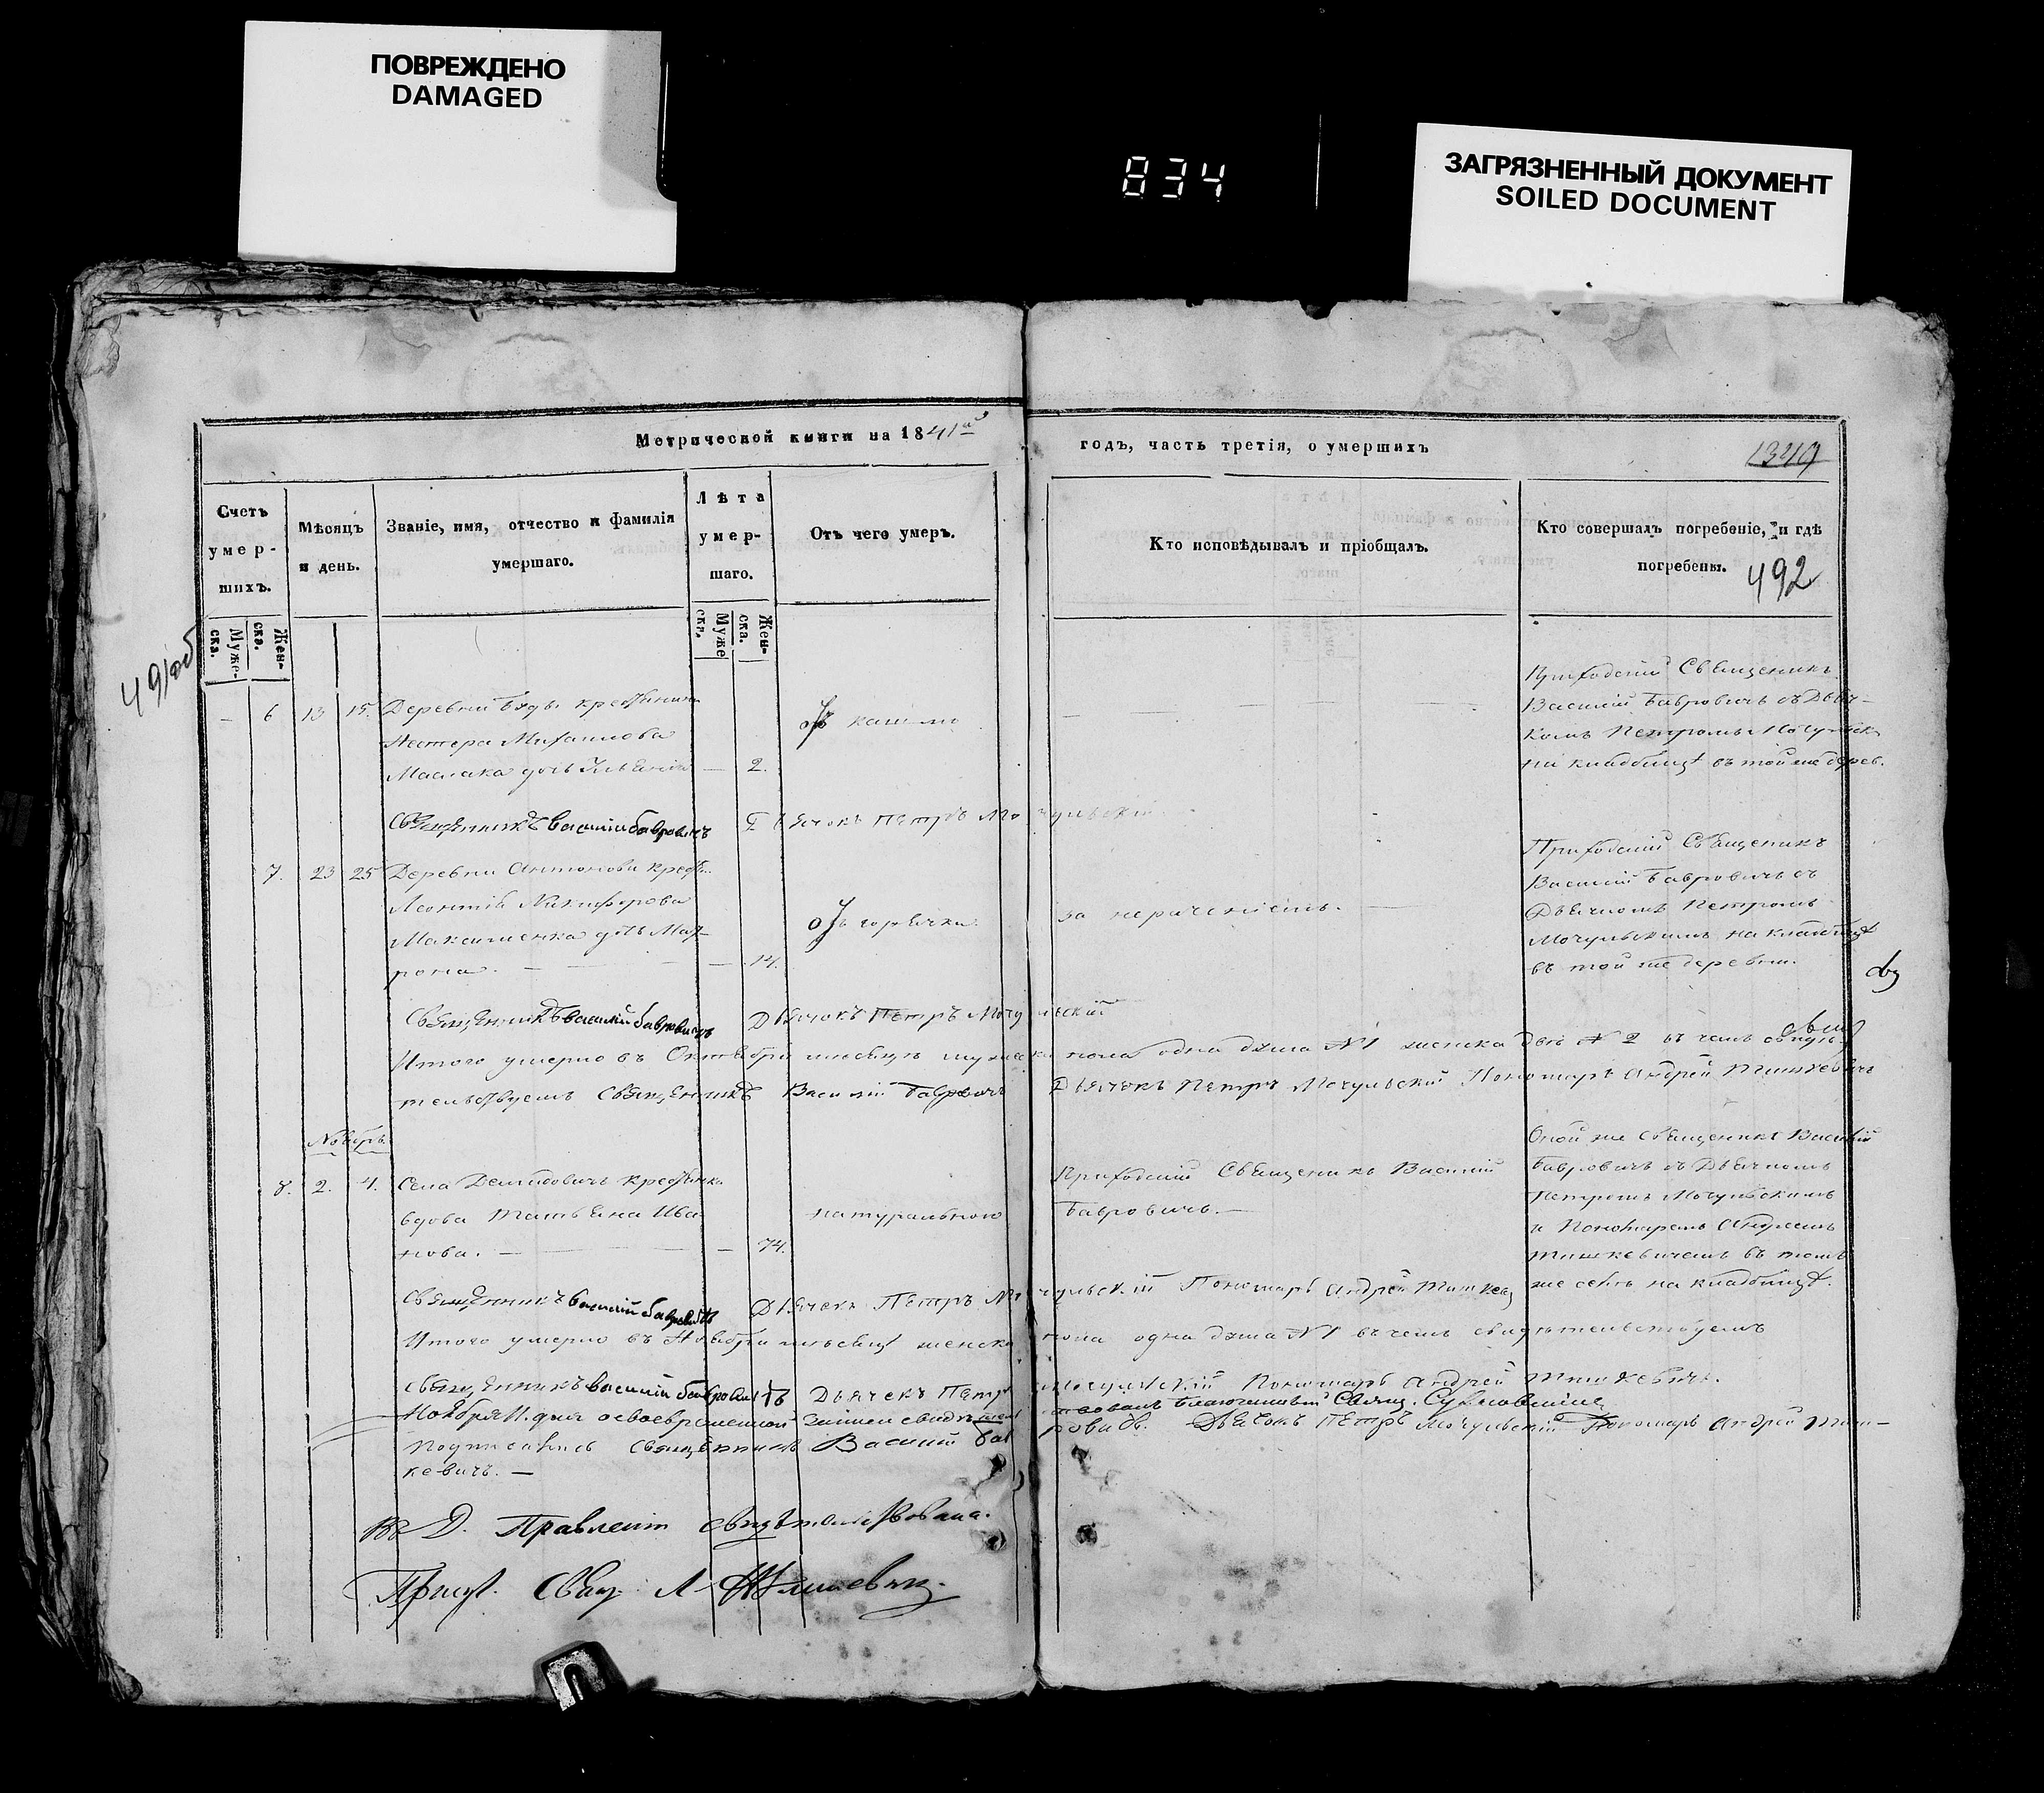 ПОВРЕЖДЕНО
DAMAGED
834
ЗАГРЯЗНЕННЫЙ ДОКУМЕНТ
SOILED DOCUMENT
Метрической книги на 1841й годъ, часть третія, о умершихъ
1340
Счетъ умер-шихъ.
Муже-ска.
Жен-ска.
Мѣсяцъ и день.
Званіе, имя, отчество и фамилія умершаго.
Лѣта умер-шаго.
Муже ска.
Жен-ска.
Отъ чего умеръ.
Кто исповѣдывалъ и пріобщалъ.
Кто совершалъ погребеніе, и гдѣ погребены.
492
491об
— 6 13 15. Деревни крестьянина
Нестера Михаилова
Маслака дочь — 2.
отъ кашлю
Приходскій Священикъ
Василій Бавровичъ съ Дьяч-
комъ Петромъ Мочульск
на кладбищѣ въ той же дерев.
Священникъ Василій Бавровичъ Дьячокъ Петръ Мочульскій
7. 23 25 Деревни Антонови крестья.
Леонтія Никифорова
Максименка дочь Мат-
рона. — 14.
отъ горячки
за нераченіемъ. —
Приходскій Священикъ
Василій Бавровичъ съ
Дьячкомъ Петромъ
Мочульскимъ на кладбищѣ
въ той же деревни.
Священникъ Василій Бавровичъ Дьячокъ Петръ Мочульскій
Итого умерло въ Октябри мѣсяцѣ мужеска пола одна душа №1 женска двѣ №2 въ чемъ
тельствуемъ Священникъ Василій Бавровичъ Дьячокъ Петръ Мочульскій Пономарь Андрей Тишкевичъ
Ноябрь
8. 2. 4. Села Демидовичъ крестьянка
вдова Татьяна Ива
нова. — 74.
натуральною
Приходскій Священикъ Василій
Бавровичъ. —
Оной же Священикъ Василій
Бавровичъ съ Дьячкомъ
Петромъ Мочульскимъ
и Пономаремъ Андреемъ
Тишкевичемъ въ томъ
же селѣ на кладбищѣ.
Священникъ Василій Бавровичъ Дьячекъ Петръ Мочульскій Пономарь Андрей Тишкев
Итого умерло въ Ноябри мѣсяцѣ женска пола одна душа №1 въ чемъ свидѣтельствуемъ
Священникъ Василій Бавровичъ Дьячекъ Петръ Мочульскій Пономарь Андрей Тишкевичъ.
Ноября дня
Подписались Священникъ Василій Бавровичъ. Дьячокъ Петръ Мочульскій Пономарь Андрей Тиш-
кевичъ. —
Въ Д. Правленіи свидѣтельствована.
Присут. Свящ. Л.